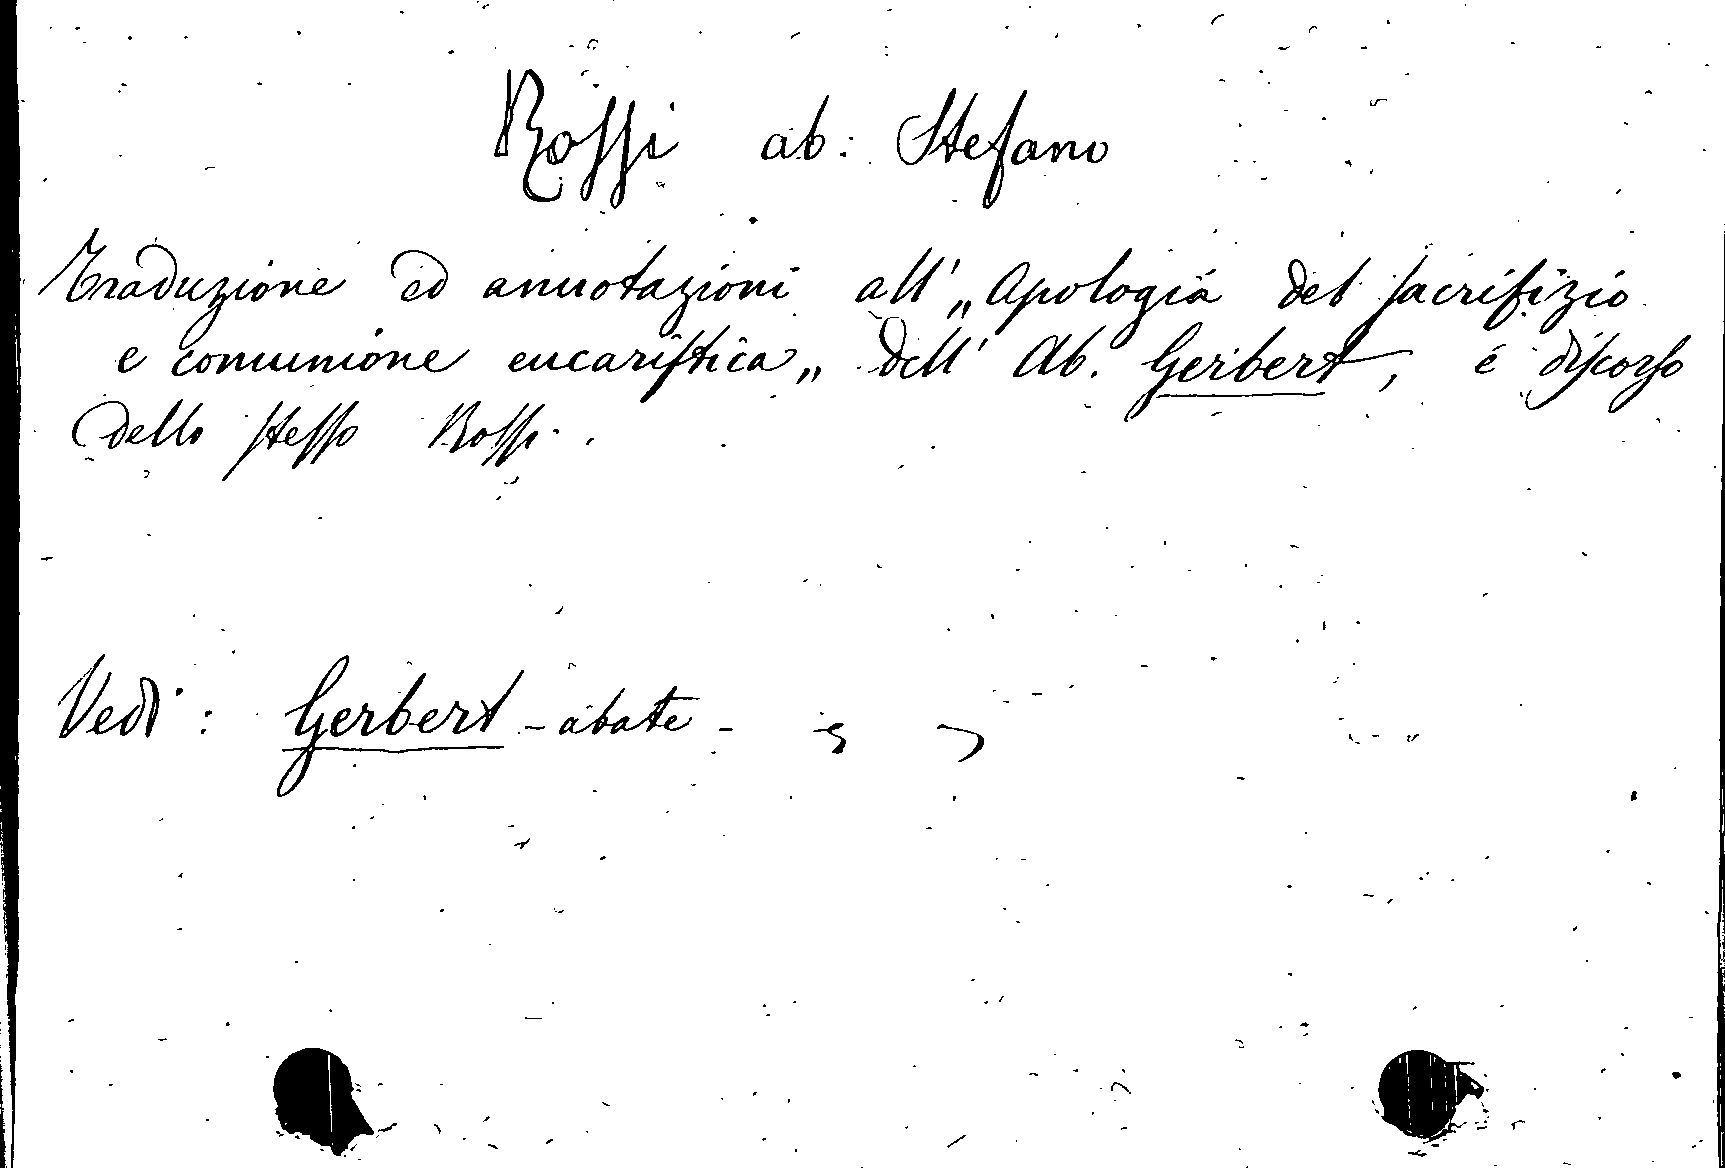 Rossi ab: Stefano
Traduzione ed annotazioni all' „Apologia del sacrifizio
e comunione eucaristica„ dell' Ab. Gerbert, e discorso
dello stesso Rossi.
Vedi: Gerbert - abate -